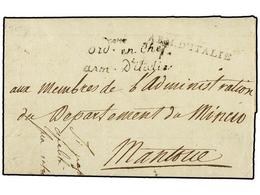 ARM. D'ITALIE
Ord. en Chef
arm. D'italie
aux Membres de l'Administration
du Departement du Mincio
Mantoue